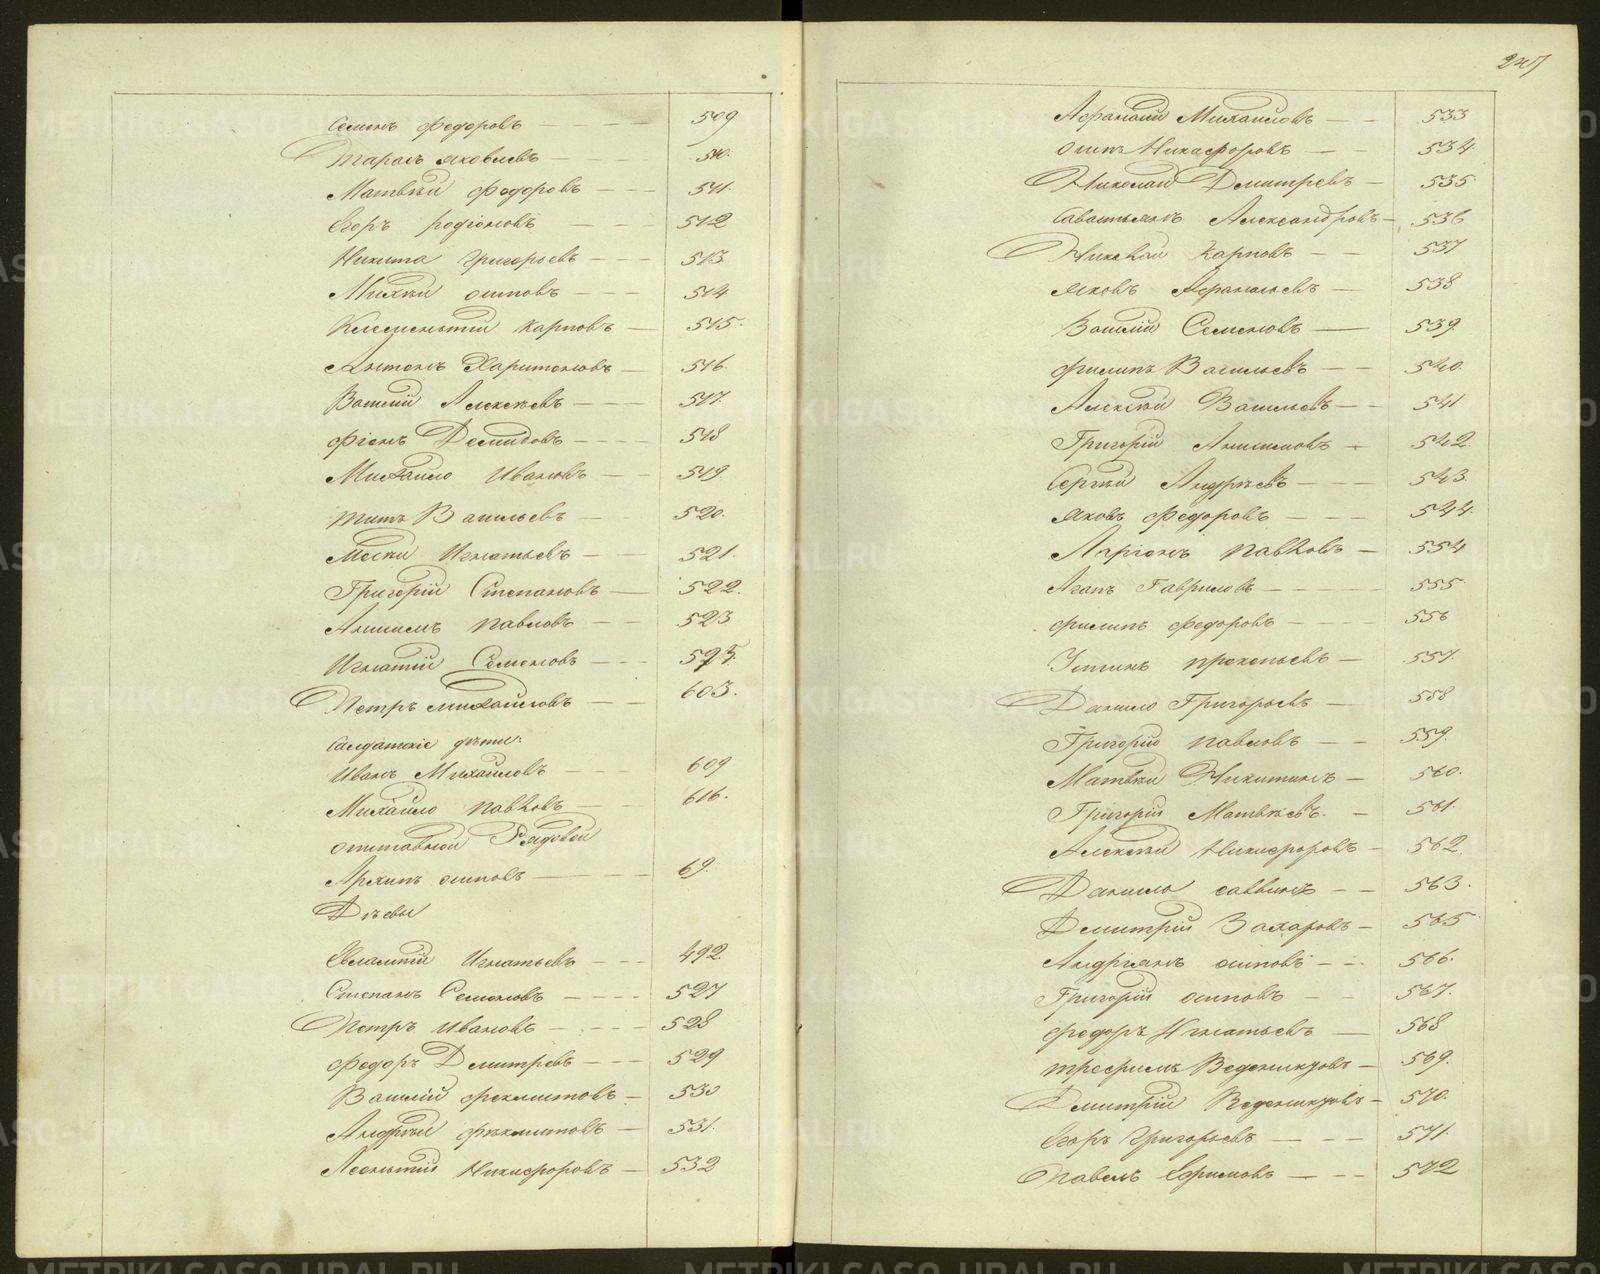 Семенъ Федоровъ — — — — 509
Тарасъ Яковлевъ — — — 510.
Матвѣй Федоровъ — — — 511.
Егоръ Родіоновъ — — — 512
Никита Григорьевъ — — — 513
Михѣй Осиповъ — — — 514
Клементий Карповъ — 515.
Антонъ Харитоновъ — 516.
Василій Алексѣевъ — — — 517.
Фионъ Демидовъ — — — — 518
Михайло Ивановъ — — 519.
Титъ Васильевъ — — 520.
Игнатьевъ — — 521.
Григорій Степановъ — 522.
Анисимъ Павловъ — — 523
Игнатій Семеновъ — —
Петръ Михайловъ — — 603.
Салдатскіе дѣти:
Иванъ Михайловъ — — — 609
Михайло Павловъ — — 616.
отставной Рядовой
Архипъ Осиповъ — — — — 69.
Евлампій Игнатьевъ — — — 492.
Степанъ Семеновъ — — — — 527
Петръ Ивановъ — — — — 528
Федоръ Дмитревъ — — — 529
Василій Феклистовъ — 530
Андрѣй Фѣклистовъ — 531.
Леонтій Никифоровъ — 532
247
Афанасій Михайловъ — — 533
Осипъ Никифоровъ — — 534.
Николай Дмитревъ — 535.
Савастьянъ Александровъ — 536
Николай Карповъ — — 537
Яковъ Афанасьевъ — 538
Василій Семеновъ — 539.
Филипъ Васильевъ — — 540.
Алексѣй Васильевъ — — 541
Григорій Анисимовъ — 542.
Сергѣй Андрѣевъ — — — 543.
Яковъ Федоровъ — — — 544.
Ларіонъ Павловъ — 554
Агапъ Гавриловъ — — — — — 555.
Филипъ Федоровъ — — — — 556
Устинъ Прокопьевъ — 557.
Данило Григорьевъ — 558
Григорій Павловъ — — 559.
Матвѣй Никитинъ — 560.
Григорій Матвѣевъ. — 561.
Алексѣй Никифоровъ — 562.
Данило Саввинъ — — 563.
Дмитрій Захаровъ — 565.
Андріянъ Осиповъ — — 566.
Григорій Осиповъ — — 567.
Федоръ Игнатьевъ — 568
Трефилъ Веденихтовъ — 569.
Дмитрій Веденихтовъ — 570.
Егоръ Григорьевъ — — — 571.
Павелъ Ефимовъ — — — 572
METRIKI.GASO-URAL.RU